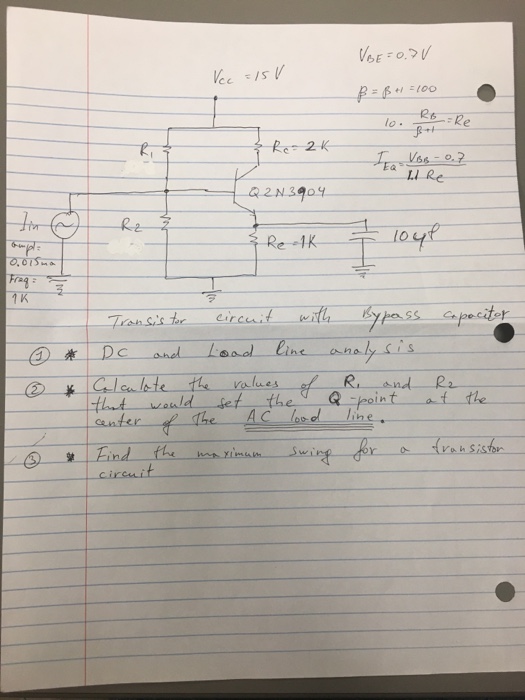 VBE = 0.7V
Vcc = 15 V
β = β+1 = 100
10. RB/β+1 = Re
R1
Rc = 2K
IEQ = VBB - 0.7 / 1.1 Re
Q2N3904
Iin
R2
ampl:
0.015ma
Re = 1K
10μf
Freq:
1K
Transistor circuit with Bypass capacitor
① * DC and Load line analysis
② * Calculate the values of R1 and R2
that would set the Q-point at the
center of the AC load line.
③ * Find the maximum swing for a transistor
circuit